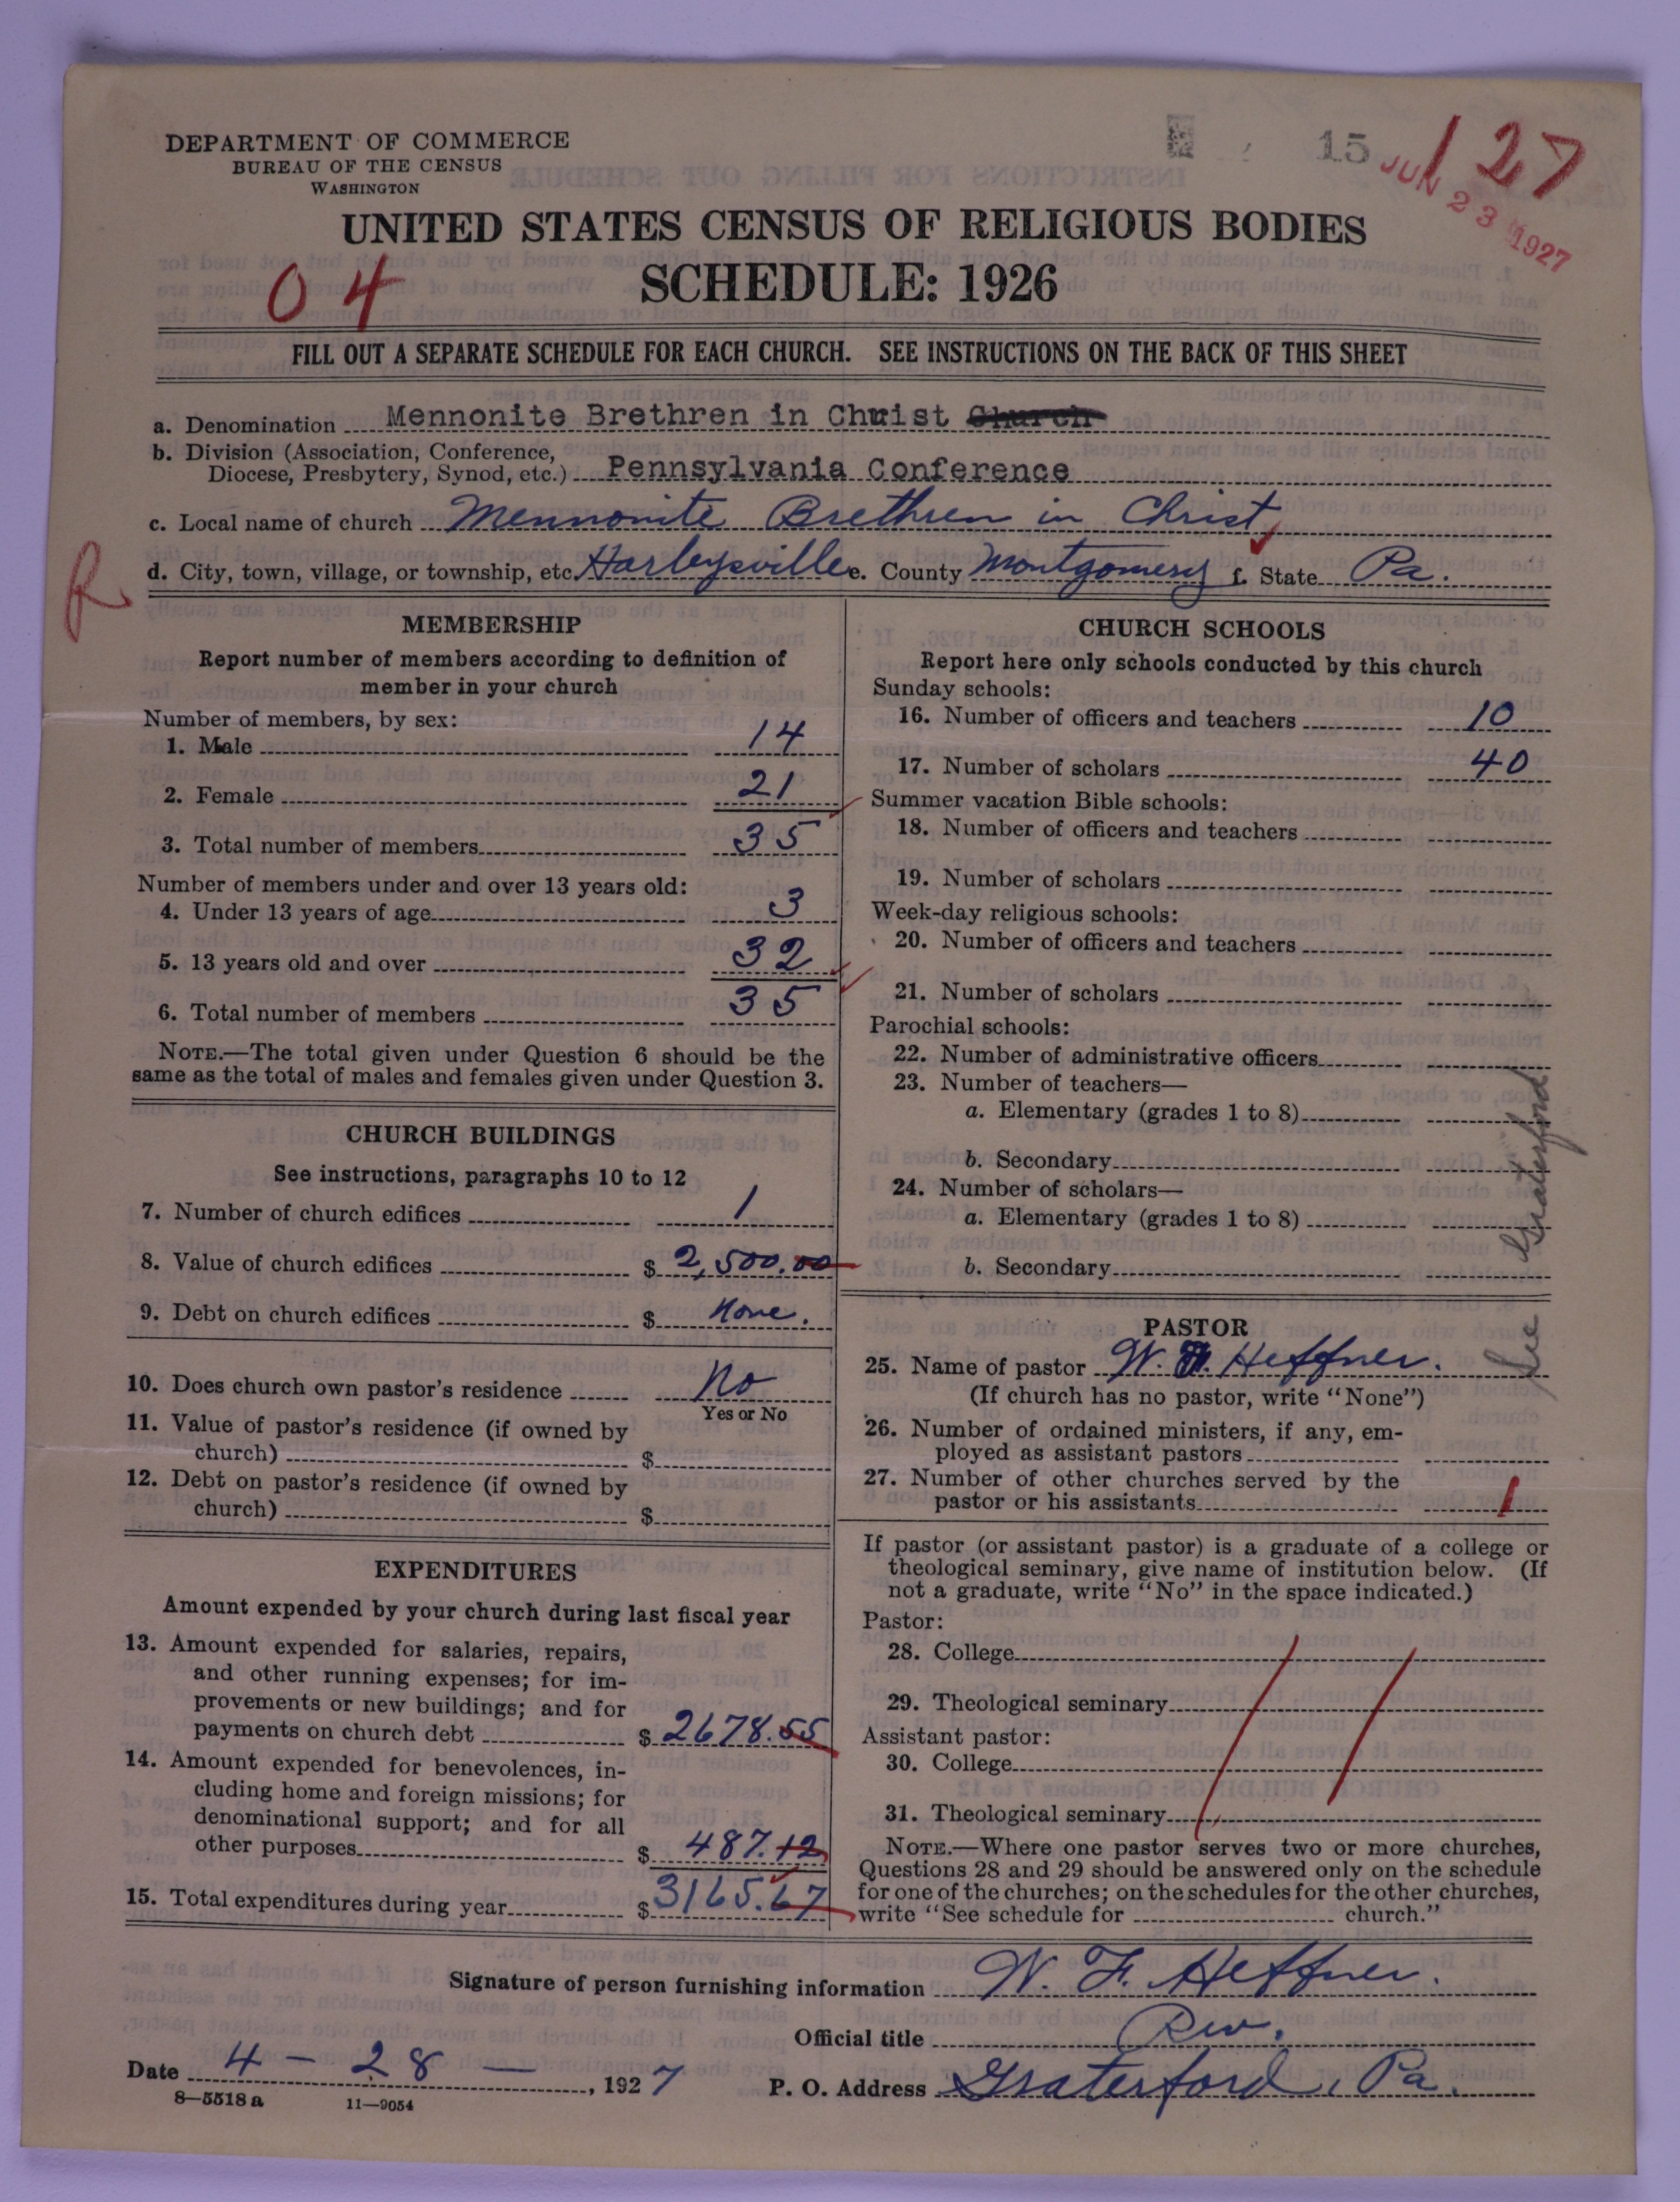 DEPARTMENT OF COMMERCE
BUREAU OF THE CENSUS
WASHINGTON
15
127
JUN 23 1927
UNITED STATES CENSUS OF RELIGIOUS BODIES
04
SCHEDULE: 1926
FILL OUT A SEPARATE SCHEDULE FOR EACH CHURCH. SEE INSTRUCTIONS ON THE BACK OF THIS SHEET
a. Denomination Mennonite Brethren in Christ Church
b. Division (Association, Conference,
Diocese, Presbytery, Synod, etc.) Pennsylvania Conference
c. Local name of church Mennonite Brethren in Christ
R
d. City, town, village, or township, etc. Harleysville e. County Montgomery f. State Pa.
MEMBERSHIP
Report number of members according to definition of
member in your church
Number of members, by sex:
1. Male 14
2. Female 21
3. Total number of members 35
Number of members under and over 13 years old:
4. Under 13 years of age 3
5. 13 years old and over 32
6. Total number of members 35
NOTE.—The total given under Question 6 should be the
same as the total of males and females given under Question 3.
CHURCH BUILDINGS
See instructions, paragraphs 10 to 12
7. Number of church edifices 1
8. Value of church edifices $ 2,500.00
9. Debt on church edifices $ None.
10. Does church own pastor's residence No
Yes or No
11. Value of pastor's residence (if owned by
church) $
12. Debt on pastor's residence (if owned by
church) $
EXPENDITURES
Amount expended by your church during last fiscal year
13. Amount expended for salaries, repairs,
and other running expenses; for im-
provements or new buildings; and for
payments on church debt $ 2678.55
14. Amount expended for benevolences, in-
cluding home and foreign missions; for
denominational support; and for all
other purposes $ 487.12
15. Total expenditures during year $ 3165.67
CHURCH SCHOOLS
Report here only schools conducted by this church
Sunday schools:
16. Number of officers and teachers 10
17. Number of scholars 40
Summer vacation Bible schools:
18. Number of officers and teachers
19. Number of scholars
Week-day religious schools:
20. Number of officers and teachers
21. Number of scholars
Parochial schools:
22. Number of administrative officers
23. Number of teachers—
a. Elementary (grades 1 to 8)
b. Secondary
24. Number of scholars—
a. Elementary (grades 1 to 8)
b. Secondary
See Graterford
PASTOR
25. Name of pastor W. F. Heffner.
(If church has no pastor, write "None")
26. Number of ordained ministers, if any, em-
ployed as assistant pastors
27. Number of other churches served by the
pastor or his assistants 1
If pastor (or assistant pastor) is a graduate of a college or
theological seminary, give name of institution below. (If
not a graduate, write "No" in the space indicated.)
Pastor:
28. College
29. Theological seminary
Assistant pastor:
30. College
31. Theological seminary
NOTE.—Where one pastor serves two or more churches,
Questions 28 and 29 should be answered only on the schedule
for one of the churches; on the schedules for the other churches,
write "See schedule for church."
Signature of person furnishing information W. F. Heffner.
Official title Rev.
Date 4 - 28 - , 1927
P. O. Address Graterford, Pa.
8—5518 a 11—9054